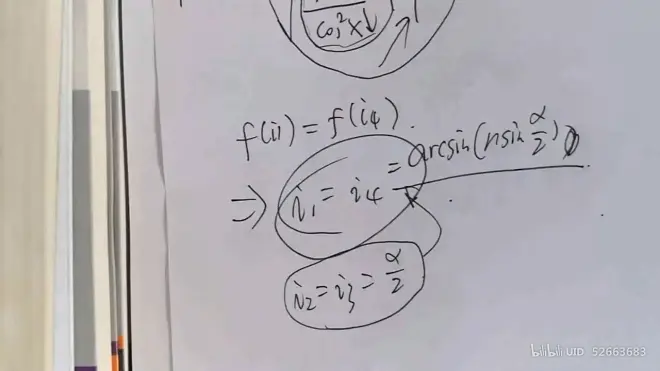 cos²x↓
f(i₁) = f(i₄).
⇒ i₁ = i₄ = arcsin(n sin α/2)
i₂ = i₃ = α/2
bilibili UID 52663683